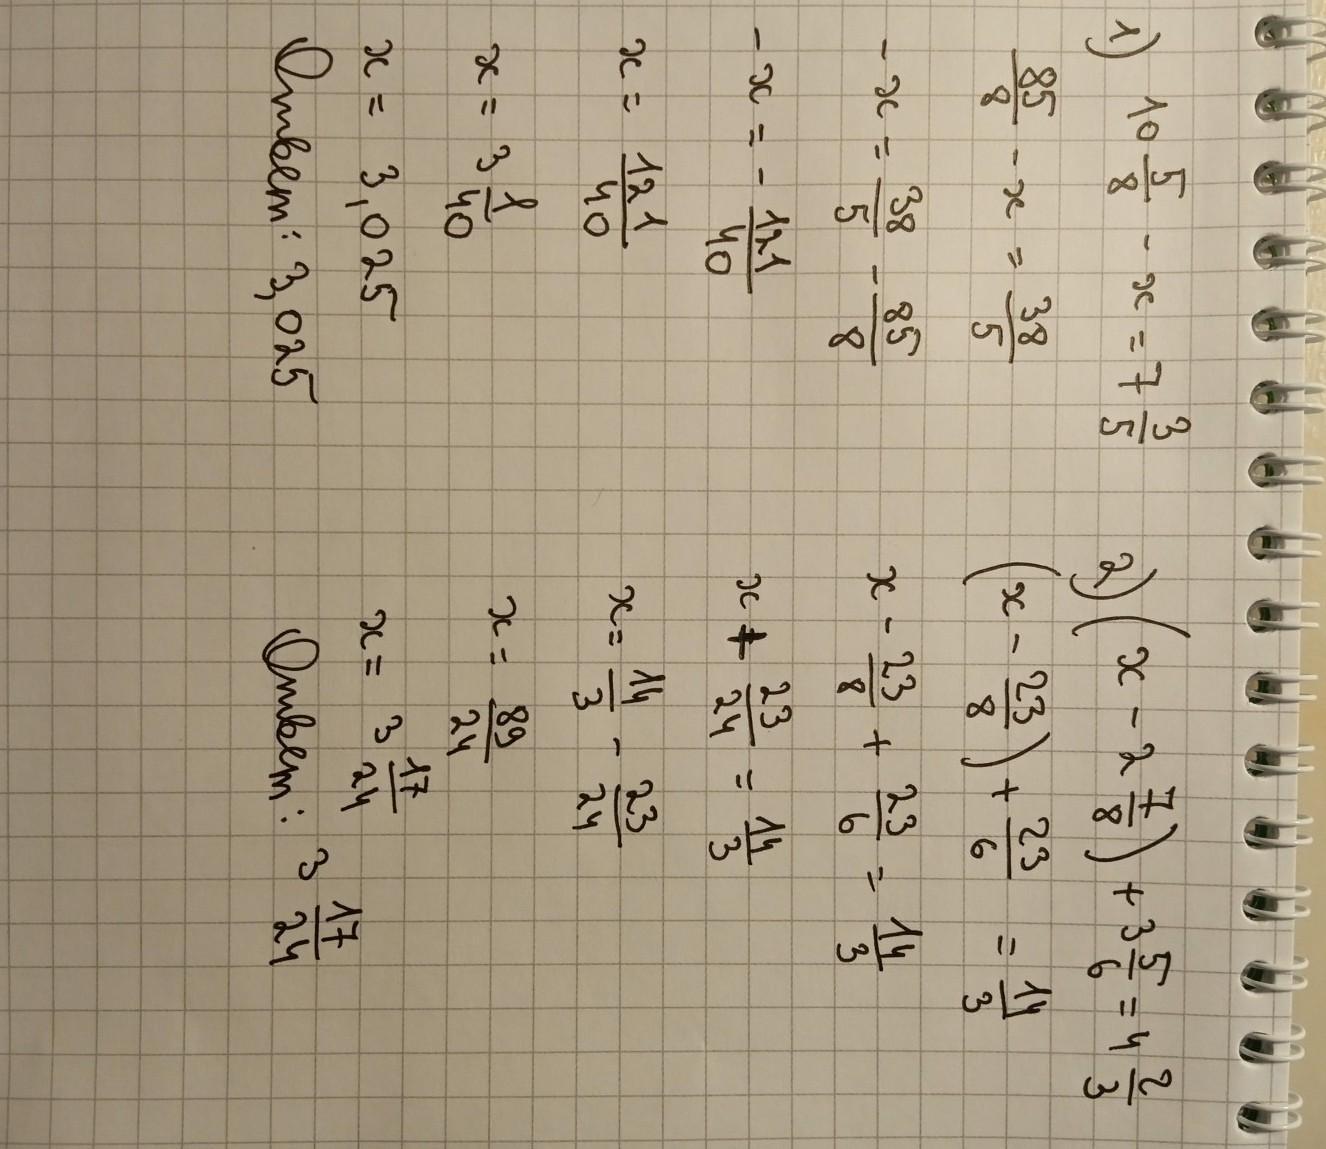 1) 10 5/8 - x = 7 3/5
85/8 - x = 38/5
- x = 38/5 - 85/8
- x = - 121/40
x = 121/40
x = 3 1/40
x = 3,025
Ответ: 3,025
2) (x - 2 7/8) + 3 5/6 = 4 2/3
(x - 23/8) + 23/6 = 14/3
x - 23/8 + 23/6 = 14/3
x + 23/24 = 14/3
x = 14/3 - 23/24
x = 89/24
x = 3 17/24
Ответ: 3 17/24